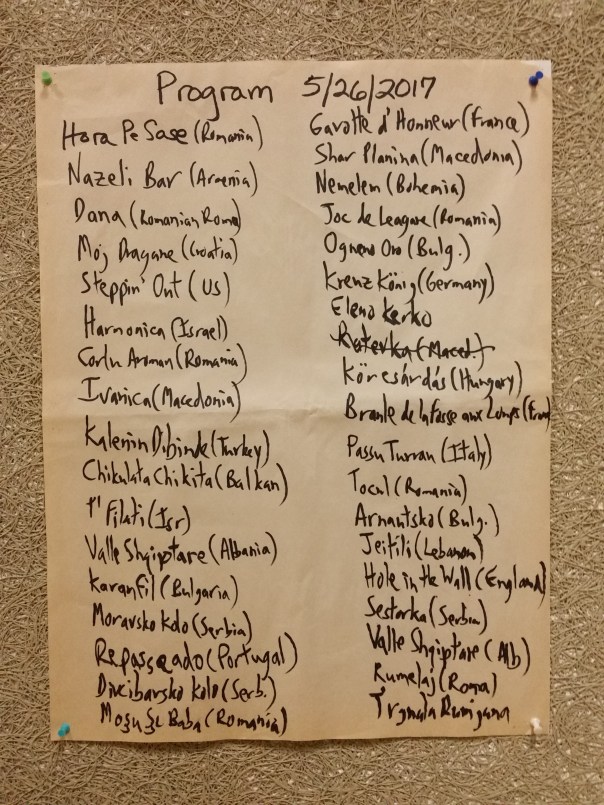 Program 5/26/2017
Hora Pe Sase (Romania)
Nazeli Bar (Armenia)
Dana (Romanian Roma)
Moj Dragane (Croatia)
Steppin' Out (US)
Harmonica (Israel)
Corlu Aroman (Romania)
Ivanica (Macedonia)
Kalenin Dibinde (Turkey)
Chikulata Chikita (Balkan)
T' Filati (Isr)
Valle Shqiptare (Albania)
Karanfil (Bulgaria)
Moravsko Kolo (Serbia)
Repasseado (Portugal)
Divcibarsko Kolo (Serb.)
Moşu Şi Baba (Romania)
Gavotte d'Honneur (France)
Shar Planina (Macedonia)
Nemelem (Bohemia)
Joc de Leagane (Romania)
Ogneno Oro (Bulg.)
Kreuz König (Germany)
Eleno Kerko
Ratevka (Maced.)
Körcsárdás (Hungary)
Branle de la Fosse aux Loups (Fran
Passu Turran (Italy)
Tocul (Romania)
Arnautsko (Bulg.)
Jeitili (Lebanon)
Hole in the Wall (England)
Sestorka (Serbia)
Valle Shqiptare (Alb)
Rumelaj (Roma)
Trgnala Rumjana